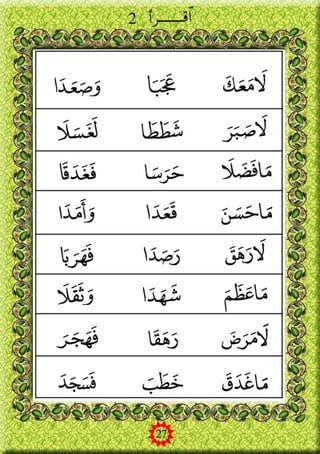 أَقـــــرأ 2
لَا مَعَكَ عَجَبَا وَصَعَدَا
لَا صَبَرَ شَطَطَا لَغَسَلَا
مَا فَضَلَا حَرَسَا فَغَدَقَا
مَا حَسَنَ قَعَدَا وَأَمَدَا
لَا رَهَقَ رَصَدَا فَهَرَبَا
مَا عَظَمَ شَهَدَا وَثَقَلَا
لَا مَرَضَ رَهَقَا فَهَجَرَ
مَا غَدَقَ خَطَبَ فَسَجَدَ
27